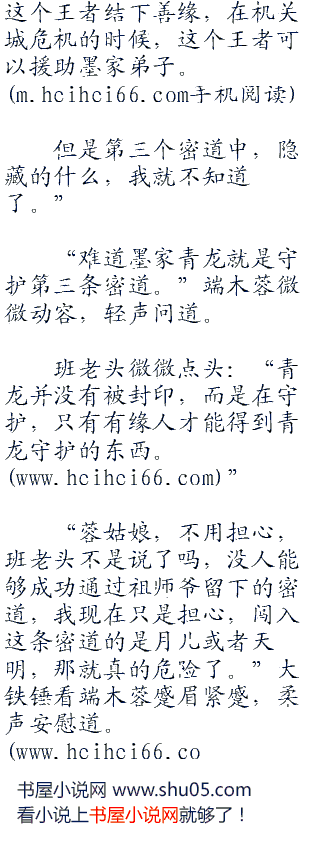 这个王者结下善缘，在机关
城危机的时候，这个王者可
以援助墨家弟子。
(m.hcihci66.com手机阅读)
但是第三个密道中，隐
藏的什么，我就不知道
了。”
“难道墨家青龙就是守
护第三条密道。”端木蓉微
微动容，轻声问道。
班老头微微点头：“青
龙并没有被封印，而是在守
护，只有有缘人才能得到青
龙守护的东西。
(www.hcihci66.com)”
“蓉姑娘，不用担心，
班老头不是说了吗，没人能
够成功通过祖师爷留下的密
道，我现在只是担心，闯入
这条密道的是月儿或者天
明，那就真的危险了。”大
铁锤看端木蓉蹙眉紧蹙，柔
声安慰道。
(www.hcihci66.co
书屋小说网 www.shu05.com
看小说上书屋小说网就够了！